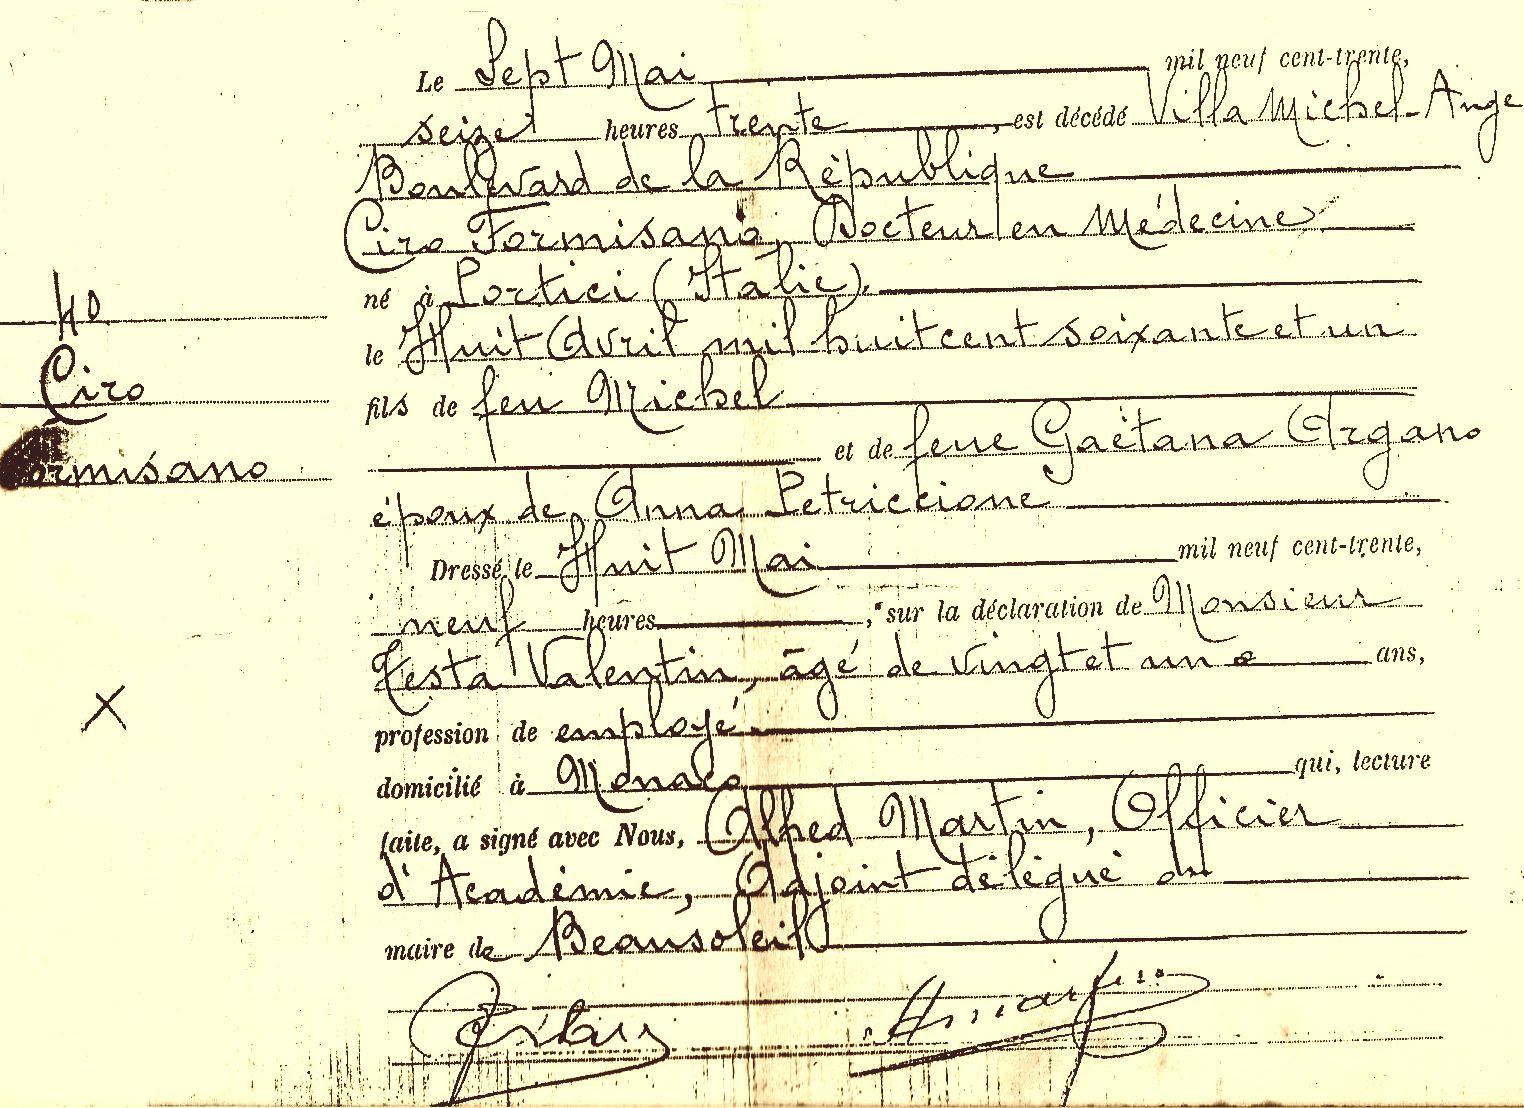 40
Ciro
Formisano
Le Sept Mai mil neuf cent-trente,
seize heures trente, est décédé Villa Michel-Ange
Boulevard de la République
Ciro Formisano, Docteur en Médecine
né à Portici (Italie).
le Huit Avril mil huit cent soixante et un
fils de feu Michel
et de feue Gaëtana Argano
époux de Anna Petriccione
Dressé le Huit Mai mil neuf cent-trente,
neuf heures, sur la déclaration de Monsieur
Testa Valentin, âgé de vingt et un ans,
profession de employé.
domicilié à Monaco qui, lecture
faite, a signé avec Nous, Alfred Martin, Officier
d'Académie, Adjoint délégué du
maire de Beausoleil